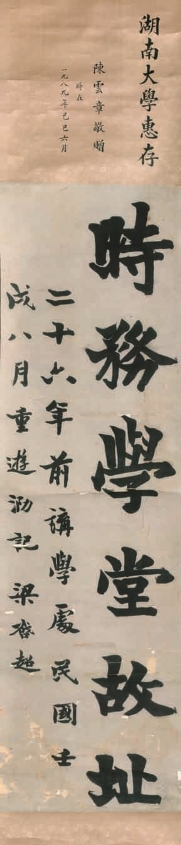 湖南大學惠存
陳雲章敬贈
時在
一九八九年己巳六月
時務學堂故址
二十六年前講學處民國壬
戌八月重遊泐記 梁啓超